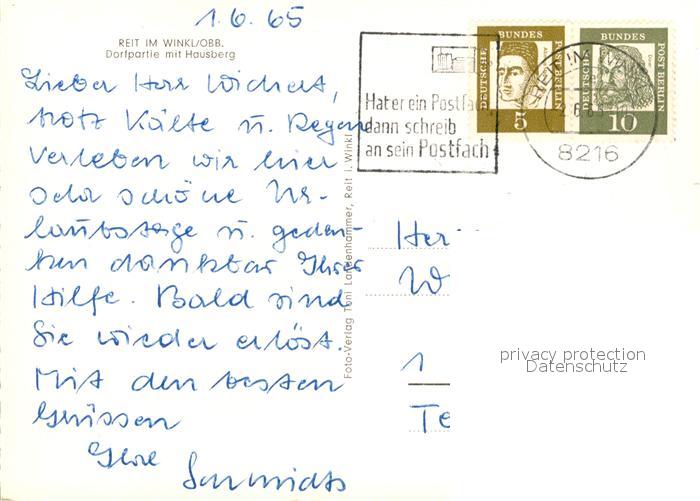 1.6.65
REIT IM WINKL/OBB.
Dorfpartie mit Hausberg
Lieber Herr Wichert,
trotz Kälte u. Regen
verleben wir hier
sehr schöne Ur-
laubstage u. geden-
ken dankbar Ihrer
Hilfe. Bald sind
Sie wieder erlöst.
Mit den besten
Grüssen
Ihre
Schmidts
Foto-Verlag Toni Lindenhammer, Reit i. Winkl
Hat er ein Postfach
dann schreib
an sein Postfach
DEUTSCHE BUNDES POST BERLIN
5
DEUTSCHE BUNDES POST BERLIN
10
8216
Her
W
1
Te
privacy protection
Datenschutz